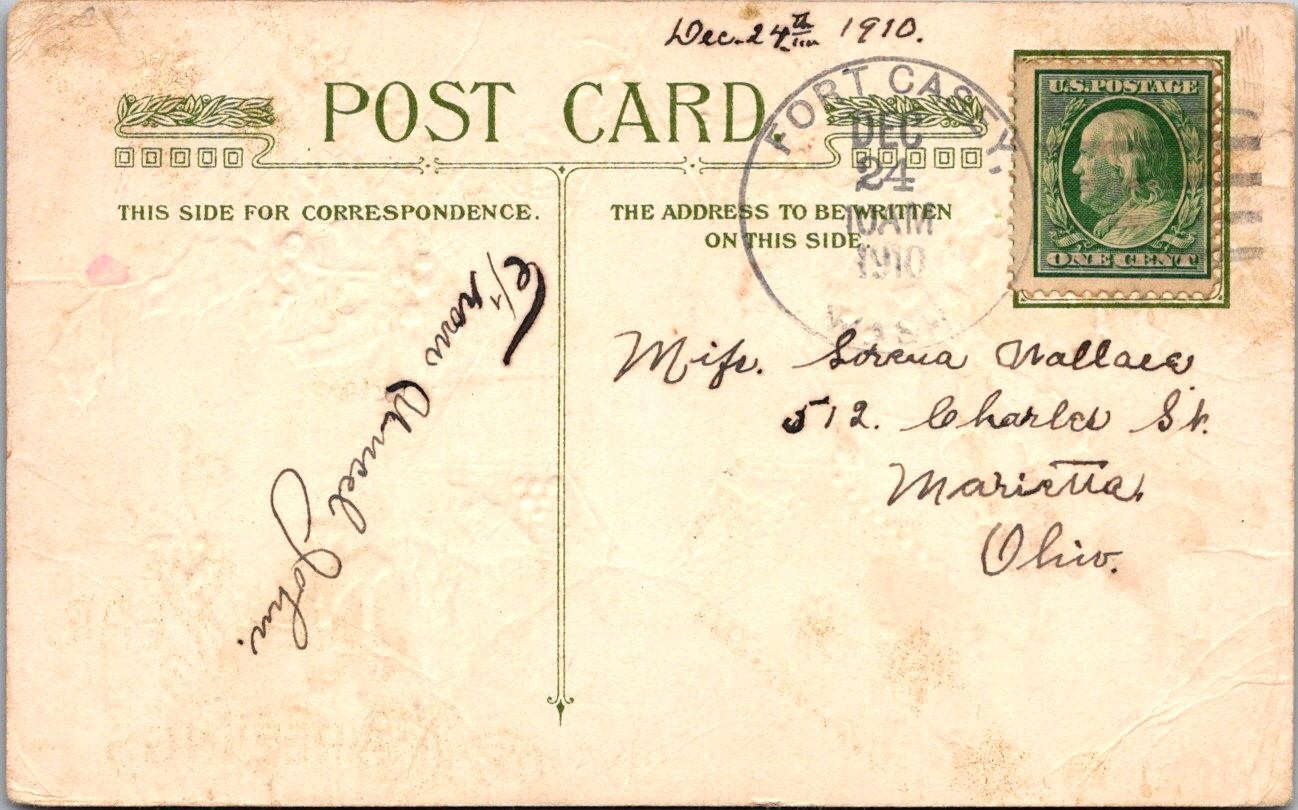 Dec. 24th 1910.
POST CARD.
FORT CASEY,
DEC
24
10AM
1910
WASH
U.S. POSTAGE
ONE CENT
THIS SIDE FOR CORRESPONDENCE.
THE ADDRESS TO BE WRITTEN
ON THIS SIDE
Miss. Lorena Wallace
512. Charles St.
Marietta,
Ohio.
From Uncel John.